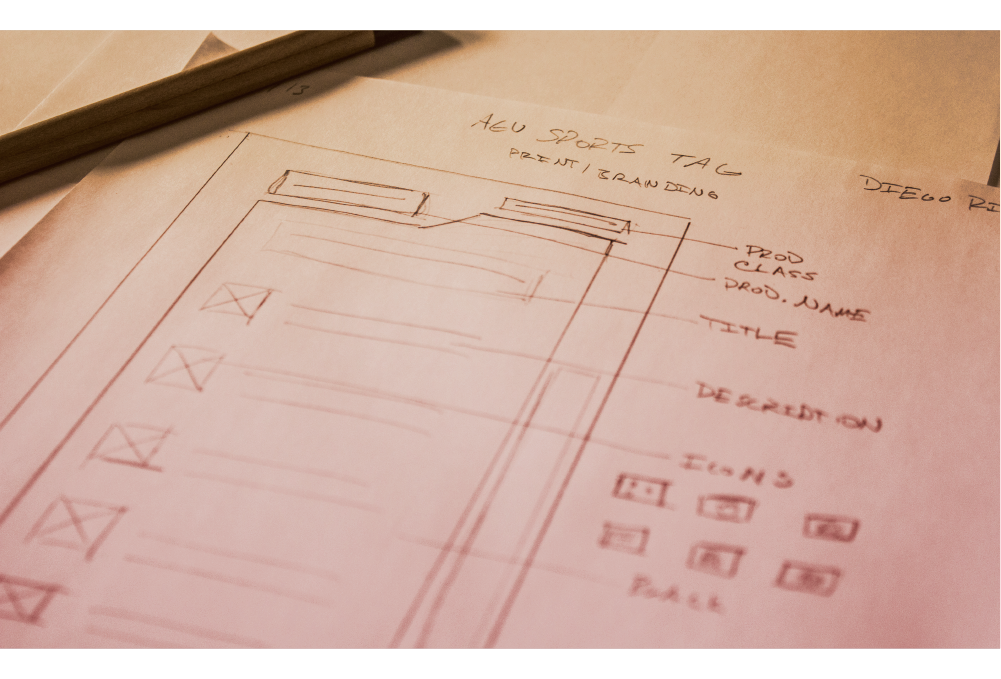 13
AGU SPORTS TAG
PRINT/BRANDING
DIEGO RI
PROD
CLASS
PROD. NAME
TITLE
DESCRIPTION
ICONS